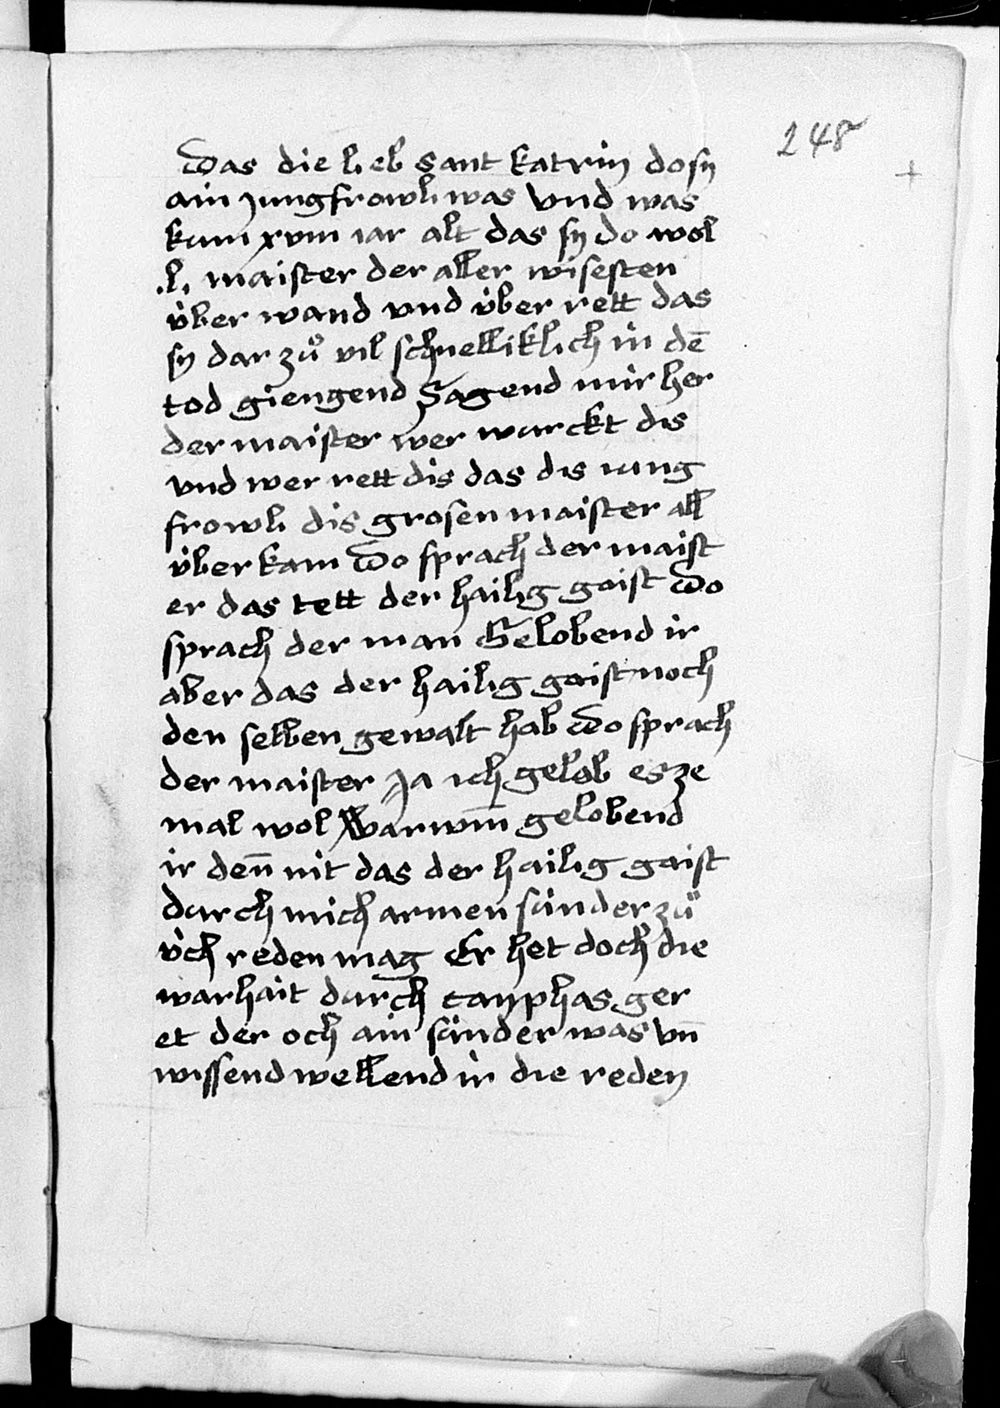 248
Das die lieb sant katrin do sy
ain jungfrowli was vnd was
kum xviii iar alt das sy do wol
.l. maister der aller wisesten
v̇ber wand vnd v̇ber rett das
sy dar zů vil schnelliklich in dē
tod giengend Sagend mir her
der maister wer wurckt dis
vnd wer rett dis das dis iung
frowli dis grosen maister all
v̇ber kam Do sprach der maist
er das tett der hailig gaist Do
sprach der man Gelobend ir
aber das der hailig gaist noch
den selben gewalt hab Do sprach
der maister Ja ich gelob es ze
mal wol Warum̄ gelobend
ir den̄ nit das der hailig gaist
durch mich armen sünder zů
v̇ch reden mag Er het doch die
warhait durch cayphas ger
et der och ain sünder was vn̄
wissend wellend ir die reden